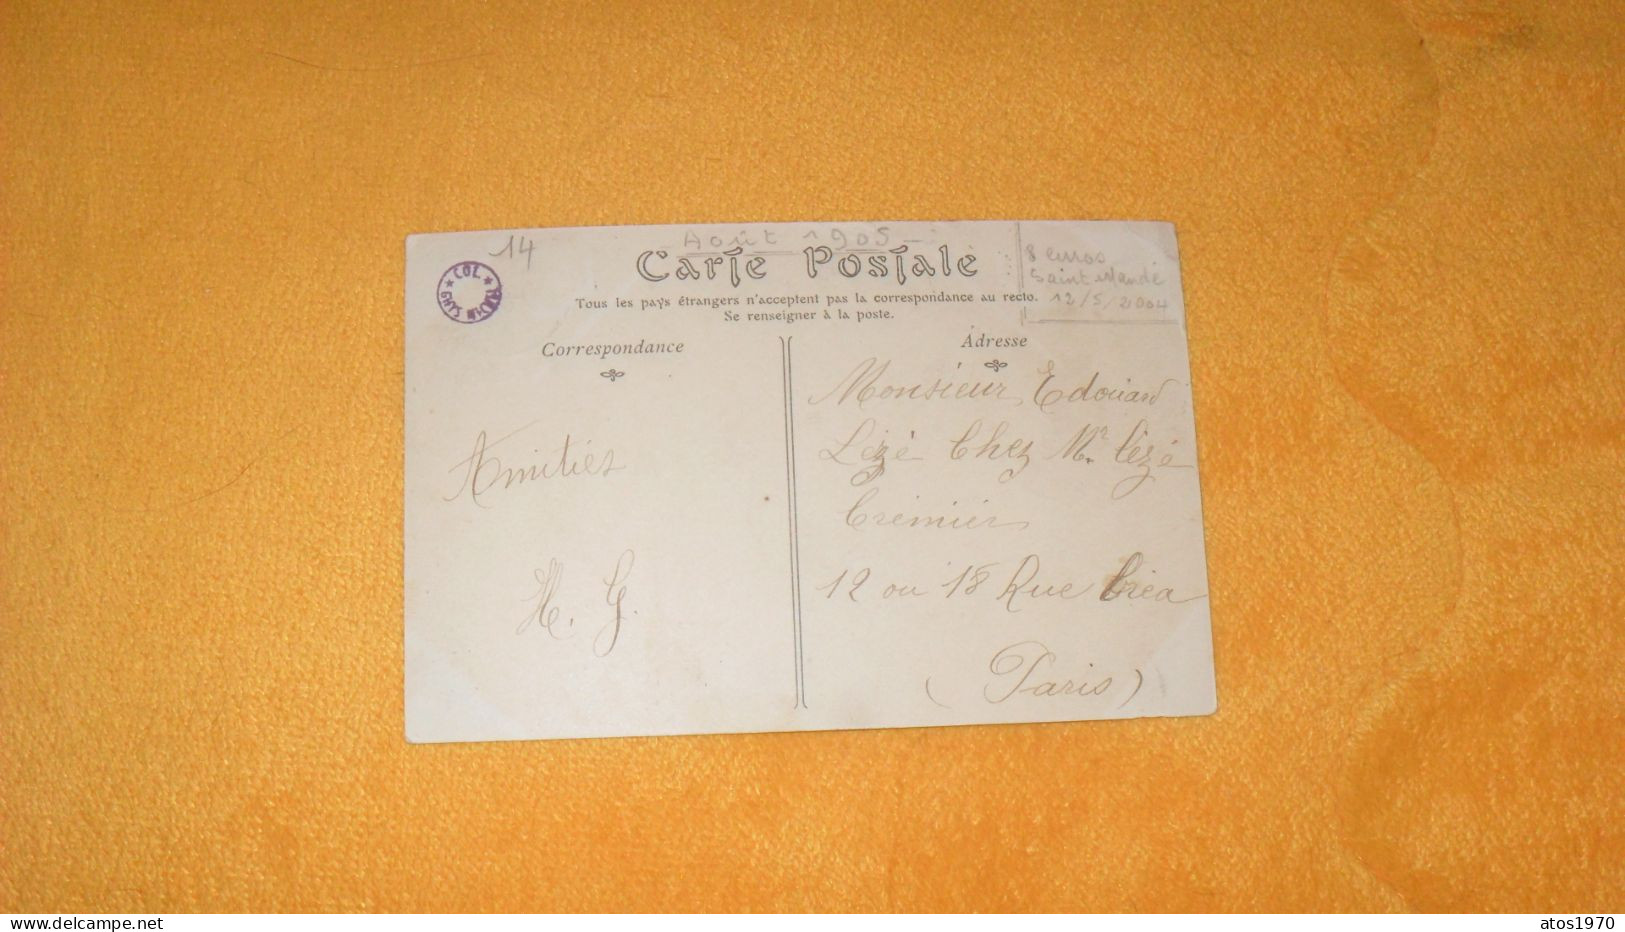 14
Août 1905
Carte Postale
8 euros
Saint Mandé
12/5/2004
COL.
Tous les pays étrangers n'acceptent pas la correspondance au recto.
Se renseigner à la poste.
Correspondance
Adresse
Amitiés
H. G.
Monsieur Edouard
Lézé Chez Mr Lézé
Crémier
12 ou 18 Rue
(Paris)
www.delcampe.net
atos1970